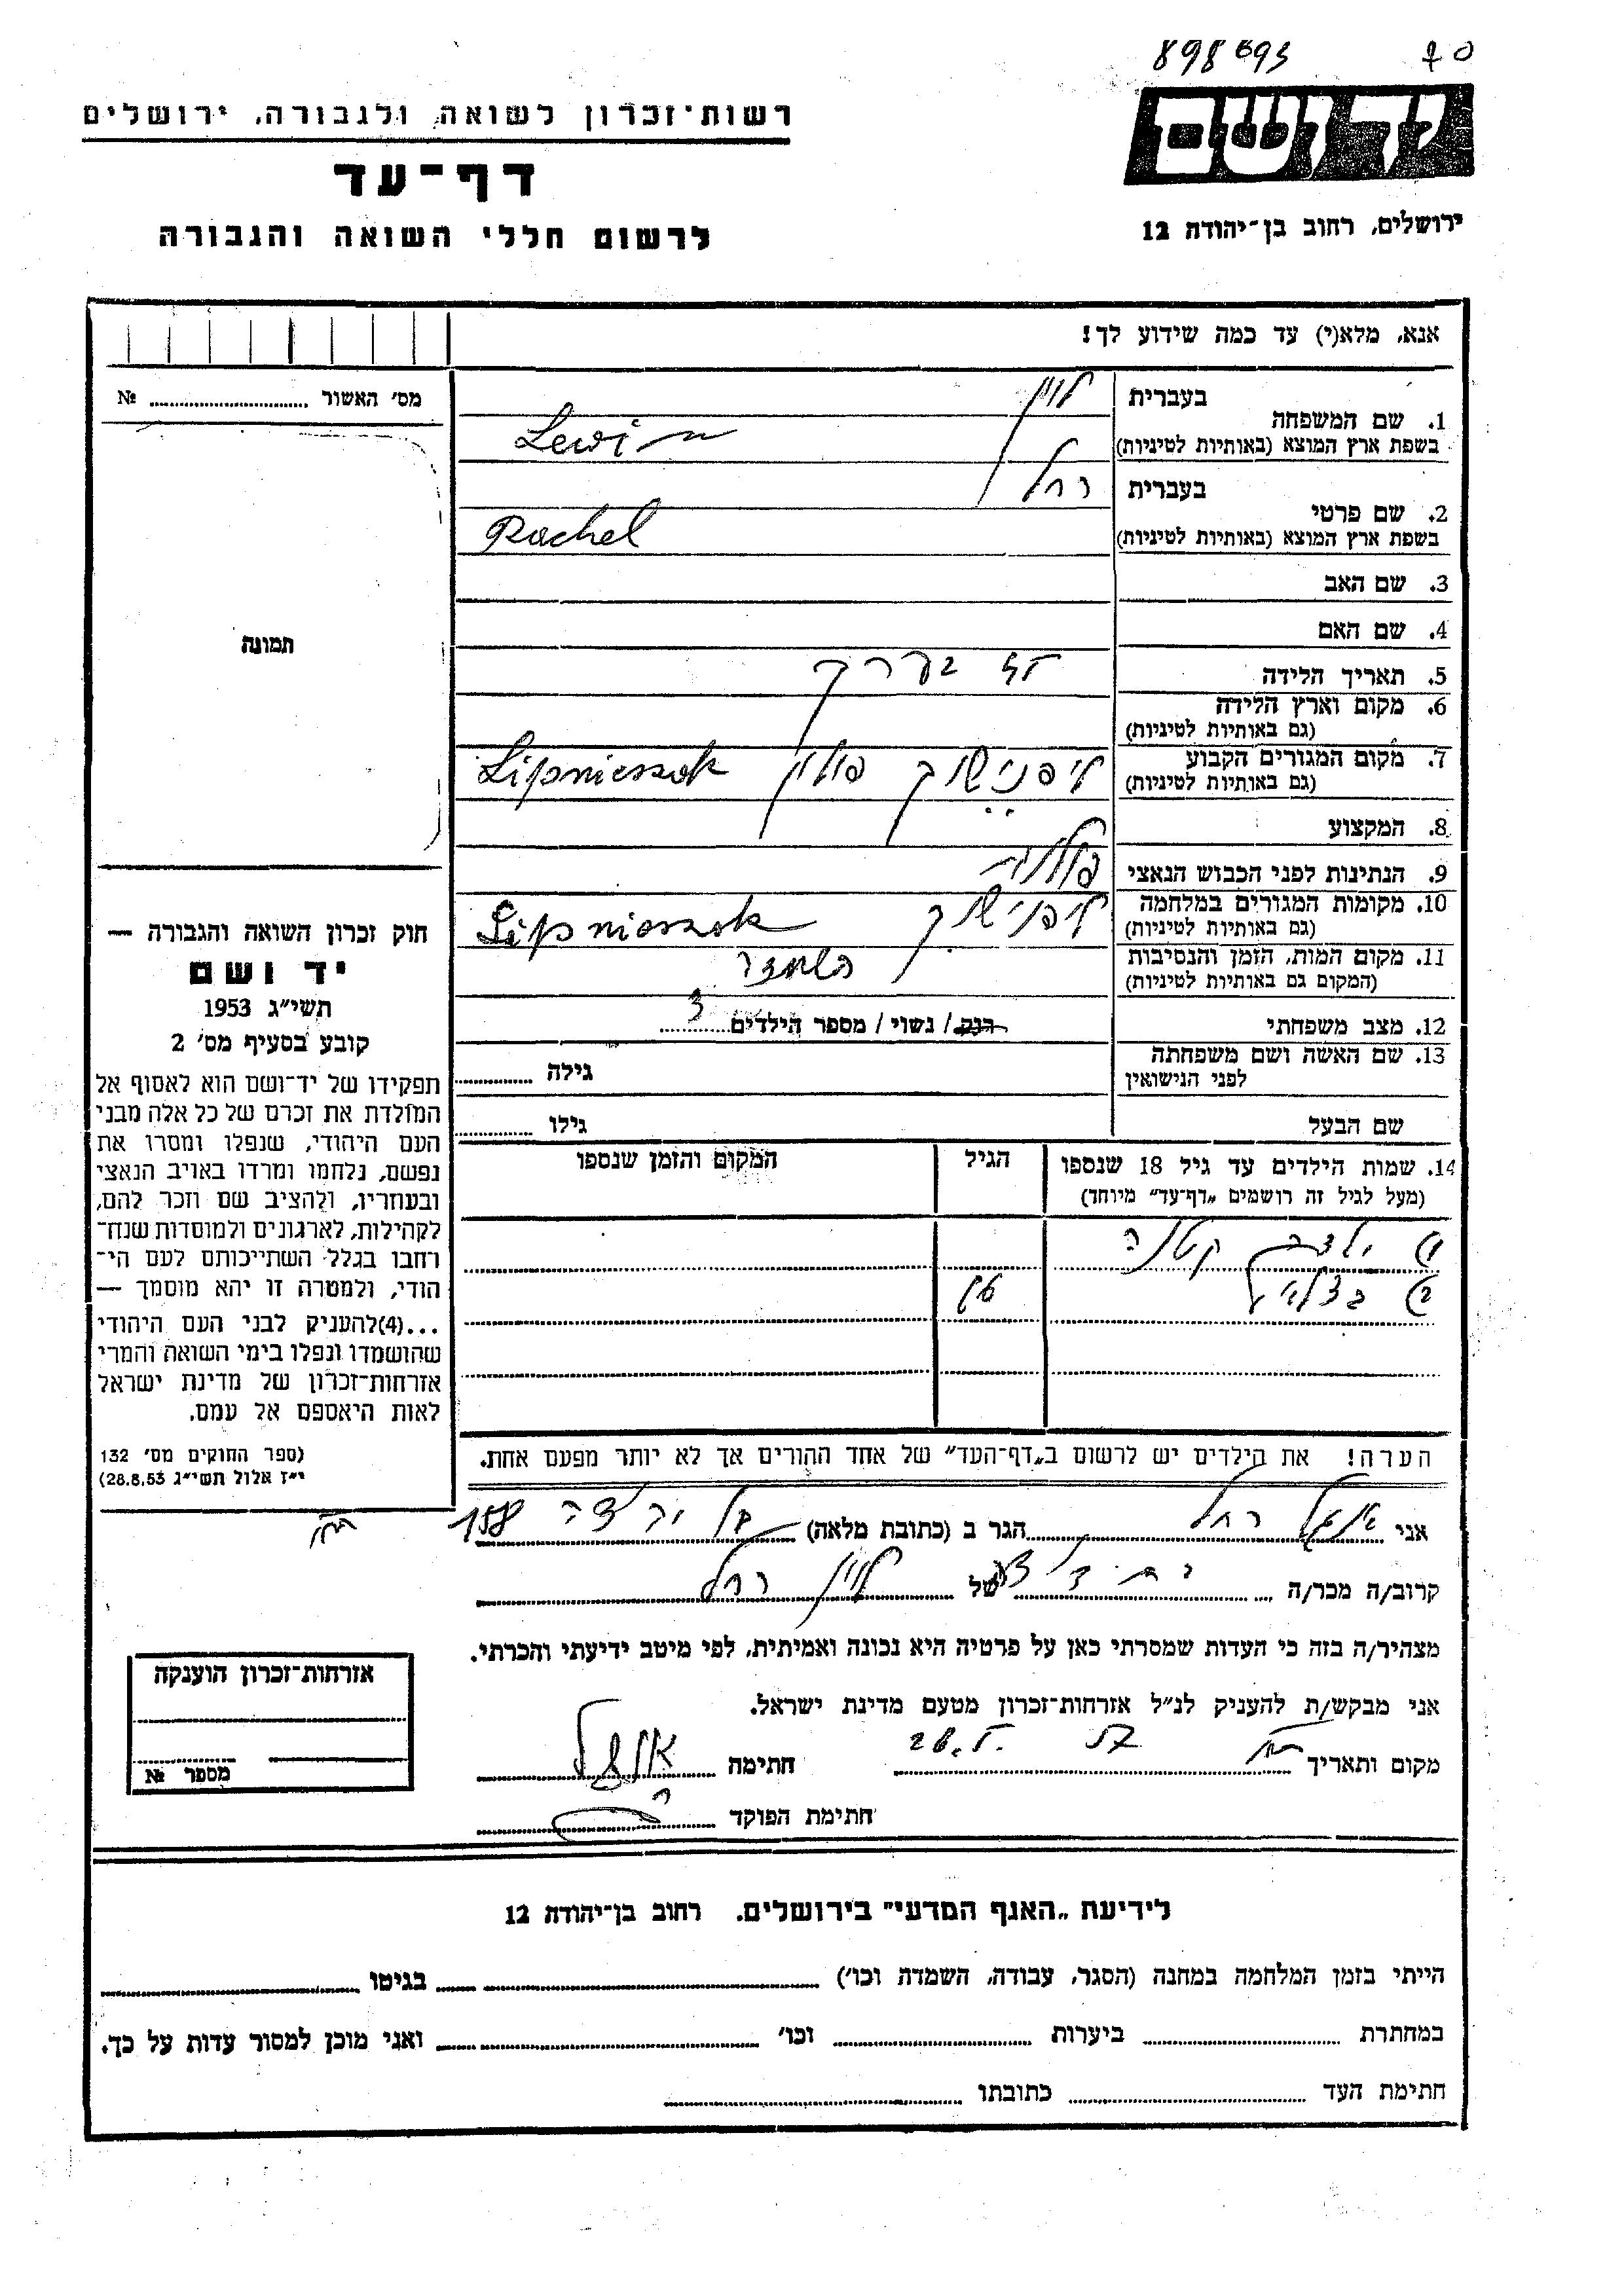 898693 70
יד ושם
ירושלים, רחוב בן־יהודה 12
רשות־זכרון לשואה ולגבורה, ירושלים
דף־עד
לרשום חללי השואה והגבורה
אנא, מלא(י) עד כמה שידוע לך!
מס׳ האשור № 
תמונה
1. שם המשפחה בעברית לוין
בשפת ארץ המוצא (באותיות לטיניות) Lewin
2. שם פרטי בעברית רחל
בשפת ארץ המוצא (באותיות לטיניות) Rachel
3. שם האב
4. שם האם
5. תאריך הלידה בערך
6. מקום וארץ הלידה
(גם באותיות לטיניות)
7. מקום המגורים הקבוע ליפנישוק פולין Lipnieszok
(גם באותיות לטיניות)
8. המקצוע
9. הנתינות לפני הכבוש הנאצי פולנית
10. מקומות המגורים במלחמה ליפנישוק Lipnieszok
(גם באותיות לטיניות)
11. מקום המות, הזמן והנסיבות
(המקום גם באותיות לטיניות)
12. מצב משפחתי רווק / נשוי / מספר הילדים 3
13. שם האשה ושם משפחתה גילה
לפני הנישואין
שם הבעל גילו
14. שמות הילדים עד גיל 18 שנספו הגיל המקום והזמן שנספו
(מעל לגיל זה רושמים „דף־עד״ מיוחד)
ילדה קטנה
בצלאל
הערה! את הילדים יש לרשום ב„דף־העד״ של אחד ההורים אך לא יותר מפעם אחת.
חוק זכרון השואה והגבורה —
יד ושם
תשי״ג 1953
קובע בסעיף מס׳ 2
תפקידו של יד־ושם הוא לאסוף אל
המולדת את זכרם של כל אלה מבני
העם היהודי, שנפלו ומסרו את
נפשם, נלחמו ומרדו באויב הנאצי
ובעוזריו, ולהציב שם וזכר להם,
לקהילות, לארגונים ולמוסדות שנח־
רחבו בגלל השתייכותם לעם הי־
הודי, ולמטרה זו יהא מוסמך —
...(4)להעניק לבני העם היהודי
שהושמדו ונפלו בימי השואה והמרי
אזרחות־זכרון של מדינת ישראל
לאות היאספם אל עמם.
(ספר החוקים מס׳ 132
י״ז אלול תשי״ג 28.8.53)
אני רחל הגר ב (כתובת מלאה) 158
קרוב/ה מכר/ה של לוין רחל
מצהיר/ה בזה כי העדות שמסרתי כאן על פרטיה היא נכונה ואמיתית, לפי מיטב ידיעתי והכרתי.
אני מבקש/ת להעניק לנ״ל אזרחות־זכרון מטעם מדינת ישראל.
מקום ותאריך חתימה
חתימת הפוקד
אזרחות־זכרון הוענקה
מספר №
לידיעת „האגף המדעי״ בירושלים, רחוב בן־יהודה 12
הייתי בזמן המלחמה במחנה (הסגר, עבודה, השמדה וכו׳) בגיטו
במחתרת ביערות וכו׳ ואני מוכן למסור עדות על כך.
חתימת העד כתובתו